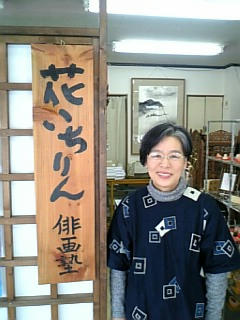 花いちりん
俳画塾